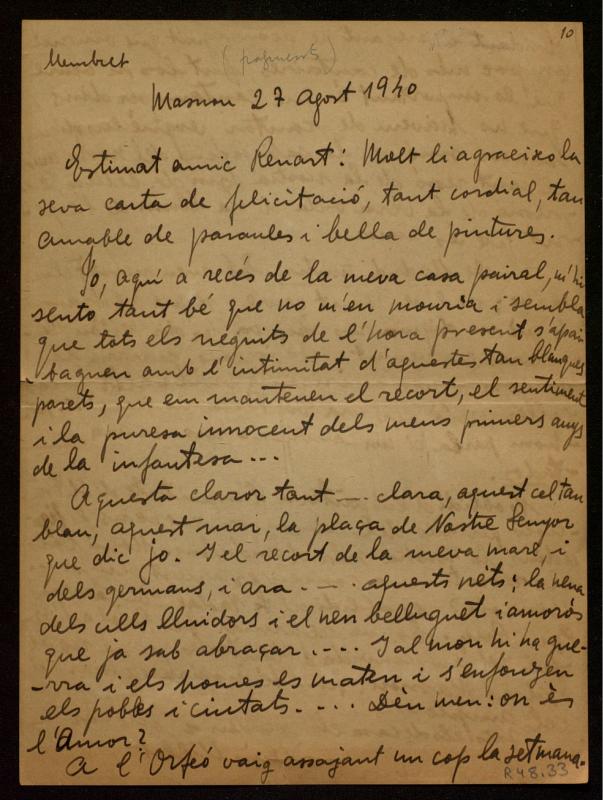 10
Membret (fragments)
Masnou 27 Agost 1940
Estimat amic Renart: Molt li agraeixo la
seva carta de felicitació, tant cordial, tan
amable de paraules i bella de pintures.
Jo, aquí a recés de la meva casa pairal, m'hi
sento tant bé que no m'en mouria i sembla
que tots els neguits de l'hora present s'apai
baguen amb l'intimitat d'aquestes tan blanques
parets, que em mantenen el recort, el sentiment
i la puresa innocent dels meus primers anys
de la infantesa...
Aquesta claror tant ... clara, aquest cel tan
blau, aquest mar, la plaça de Nostre Senyor
que dic jo. I el recort de la meva mare, i
dels germans, i ara .... aquests néts; la nena
dels ulls lluidors i el nen belluguet i amorós
que ja sab abraçar.... I al mon hi ha gue-
-rra i els homes es maten i s'enfonzen
els pobles i ciutats.... Déu meu: on és
l'Amor?
A l'Orfeó vaig assajant un cop la setmana.
R48.33